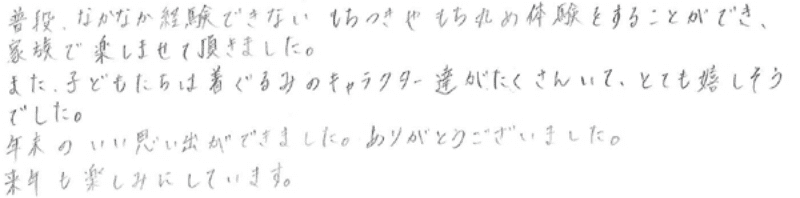 普段、なかなか経験できない もちつきや もち丸め体験をすることができ、
家族で楽しませて頂きました。
また、子どもたちは着ぐるみのキャラクター達がたくさんいて、とても嬉しそう
でした。
年末のいい思い出ができました。ありがとうございました。
来年も楽しみにしています。